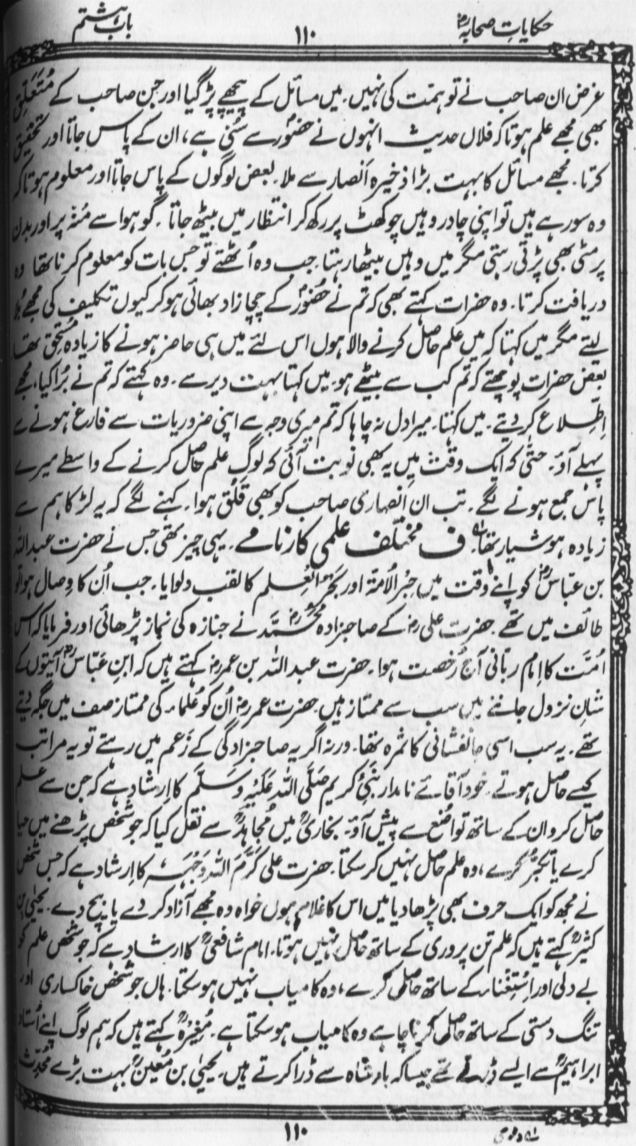 حکایاتِ صحابہؓ
۱۱۰
باب ہشتم
غرض ان صاحب نے تو ہمت کی نہیں۔ میں مسائل کے پیچھے پڑ گیا اور جن صاحب کے مُتَعَلِّق
بھی مجھے علم ہوتا کہ فلاں حدیث انہوں نے حضورؐ سے سُنی ہے، ان کے پاس جاتا اور تحقیق
کرتا۔ مجھے مسائل کا بہت بڑا ذخیرہ اَنصار سے ملا۔ بعض لوگوں کے پاس جاتا اور معلوم ہوتا کہ
وہ سو رہے ہیں تو اپنی چادر وہیں چوکھٹ پر رکھ کر انتظار میں بیٹھ جاتا۔ گو ہوا سے مُنہ پر اور بدن
پر مٹی بھی پڑتی رہتی مگر میں وہیں بیٹھا رہتا۔ جب وہ اُٹھتے تو جس بات کو معلوم کرنا تھا وہ
دریافت کرتا۔ وہ حضرات کہتے بھی کہ تم نے حضورؐ کے چچا زاد بھائی ہو کر کیوں تکلیف کی مجھے بُلا
لیتے مگر میں کہتا کہ میں علم حاصل کرنے والا ہوں اس لئے میں ہی حاضر ہونے کا زیادہ مُستحق تھا
بعض حضرات پوچھتے کہ تم کب سے بیٹھے ہو۔ میں کہتا بہت دیر سے۔ وہ کہتے کہ تم نے بُرا کیا، مجھے
اِطّلاع کر دیتے۔ میں کہتا۔ میرا دل نہ چاہا کہ تم میری وجہ سے اپنی ضروریات سے فارغ ہونے سے
پہلے آؤ۔ حتٰی کہ ایک وقت میں یہ بھی نوبت آئی کہ لوگ علم حاصل کرنے کے واسطے میرے
پاس جمع ہونے لگے۔ تب ان انصاری صاحب کو بھی قلق ہوا۔ کہنے لگے کہ یہ لڑکا ہم سے
زیادہ ہوشیار تھا۔ ف مختلف علمی کارنامے۔ یہی چیز تھی جس نے حضرت عبداللہ
بن عباسؓ کو اپنے وقت میں حِبْرُ الاُمَّۃ اور بَحْرُ العِلم کا لقب دلوایا۔ جب اُن کا وصال ہوا تو
طائف میں تھے۔ حضرت علیؓ کے صاحبزادہ محمّد نے جنازہ کی نماز پڑھائی اور فرمایا کہ اس
اُمّت کا امامِ ربّانی آج رُخصت ہوا۔ حضرت عبداللہ بن عمرؓ کہتے ہیں کہ ابنِ عَبّاسؓ آیتوں کے
شانِ نزول جاننے میں سب سے ممتاز ہیں۔ حضرت عمرؓ اُن کو عُلماء کی ممتاز صف میں جگہ دیتے
تھے۔ یہ سب اسی جانفشانی کا ثمرہ تھا۔ ورنہ اگر یہ صاحبزادگی کے زَعم میں رہتے تو یہ مراتب
کیسے حاصل ہوتے۔ خود آقائے نامدار نبیِّ کریم صَلَّی اللہُ عَلَیْہِ وَسَلَّم کا اِرشاد ہے کہ جن سے علم
حاصل کرو ان کے ساتھ تواضُع سے پیش آؤ۔ بخاریؒ میں مُجاہدؒ سے نقل کیا کہ جو شخص پڑھنے میں حیا
کرے یا تکبُّر کرے، وہ علم حاصل نہیں کر سکتا۔ حضرت علی کَرَّمَ اللہُ وَجْہَہٗ کا اِرشاد ہے کہ جس شخص
نے مجھ کو ایک حرف بھی پڑھا دیا میں اس کا غلام ہوں خواہ وہ مجھے آزاد کر دے یا بیچ دے۔ یحییٰ بن
کثیرؒ کہتے ہیں کہ علم تن پروری کے ساتھ حاصل نہیں ہوتا۔ امام شافعیؒ کا ارشاد ہے کہ جو شخص علم کو
بے دِلی اور اِستغناء کے ساتھ حاصل کرے، وہ کامیاب نہیں ہو سکتا۔ ہاں جو شخص خاکساری اور
تنگ دستی کے ساتھ حاصل کرنا چاہے وہ کامیاب ہو سکتا ہے۔ مُغیرہؒ کہتے ہیں کہ ہم لوگ اپنے اُستاد
ابراہیمؒ سے ایسے ڈرتے تھے جیسا کہ بادشاہ سے ڈرا کرتے ہیں۔ یحییٰ بن مُعینؒ بہت بڑے مُحدِّث
۱۱۰